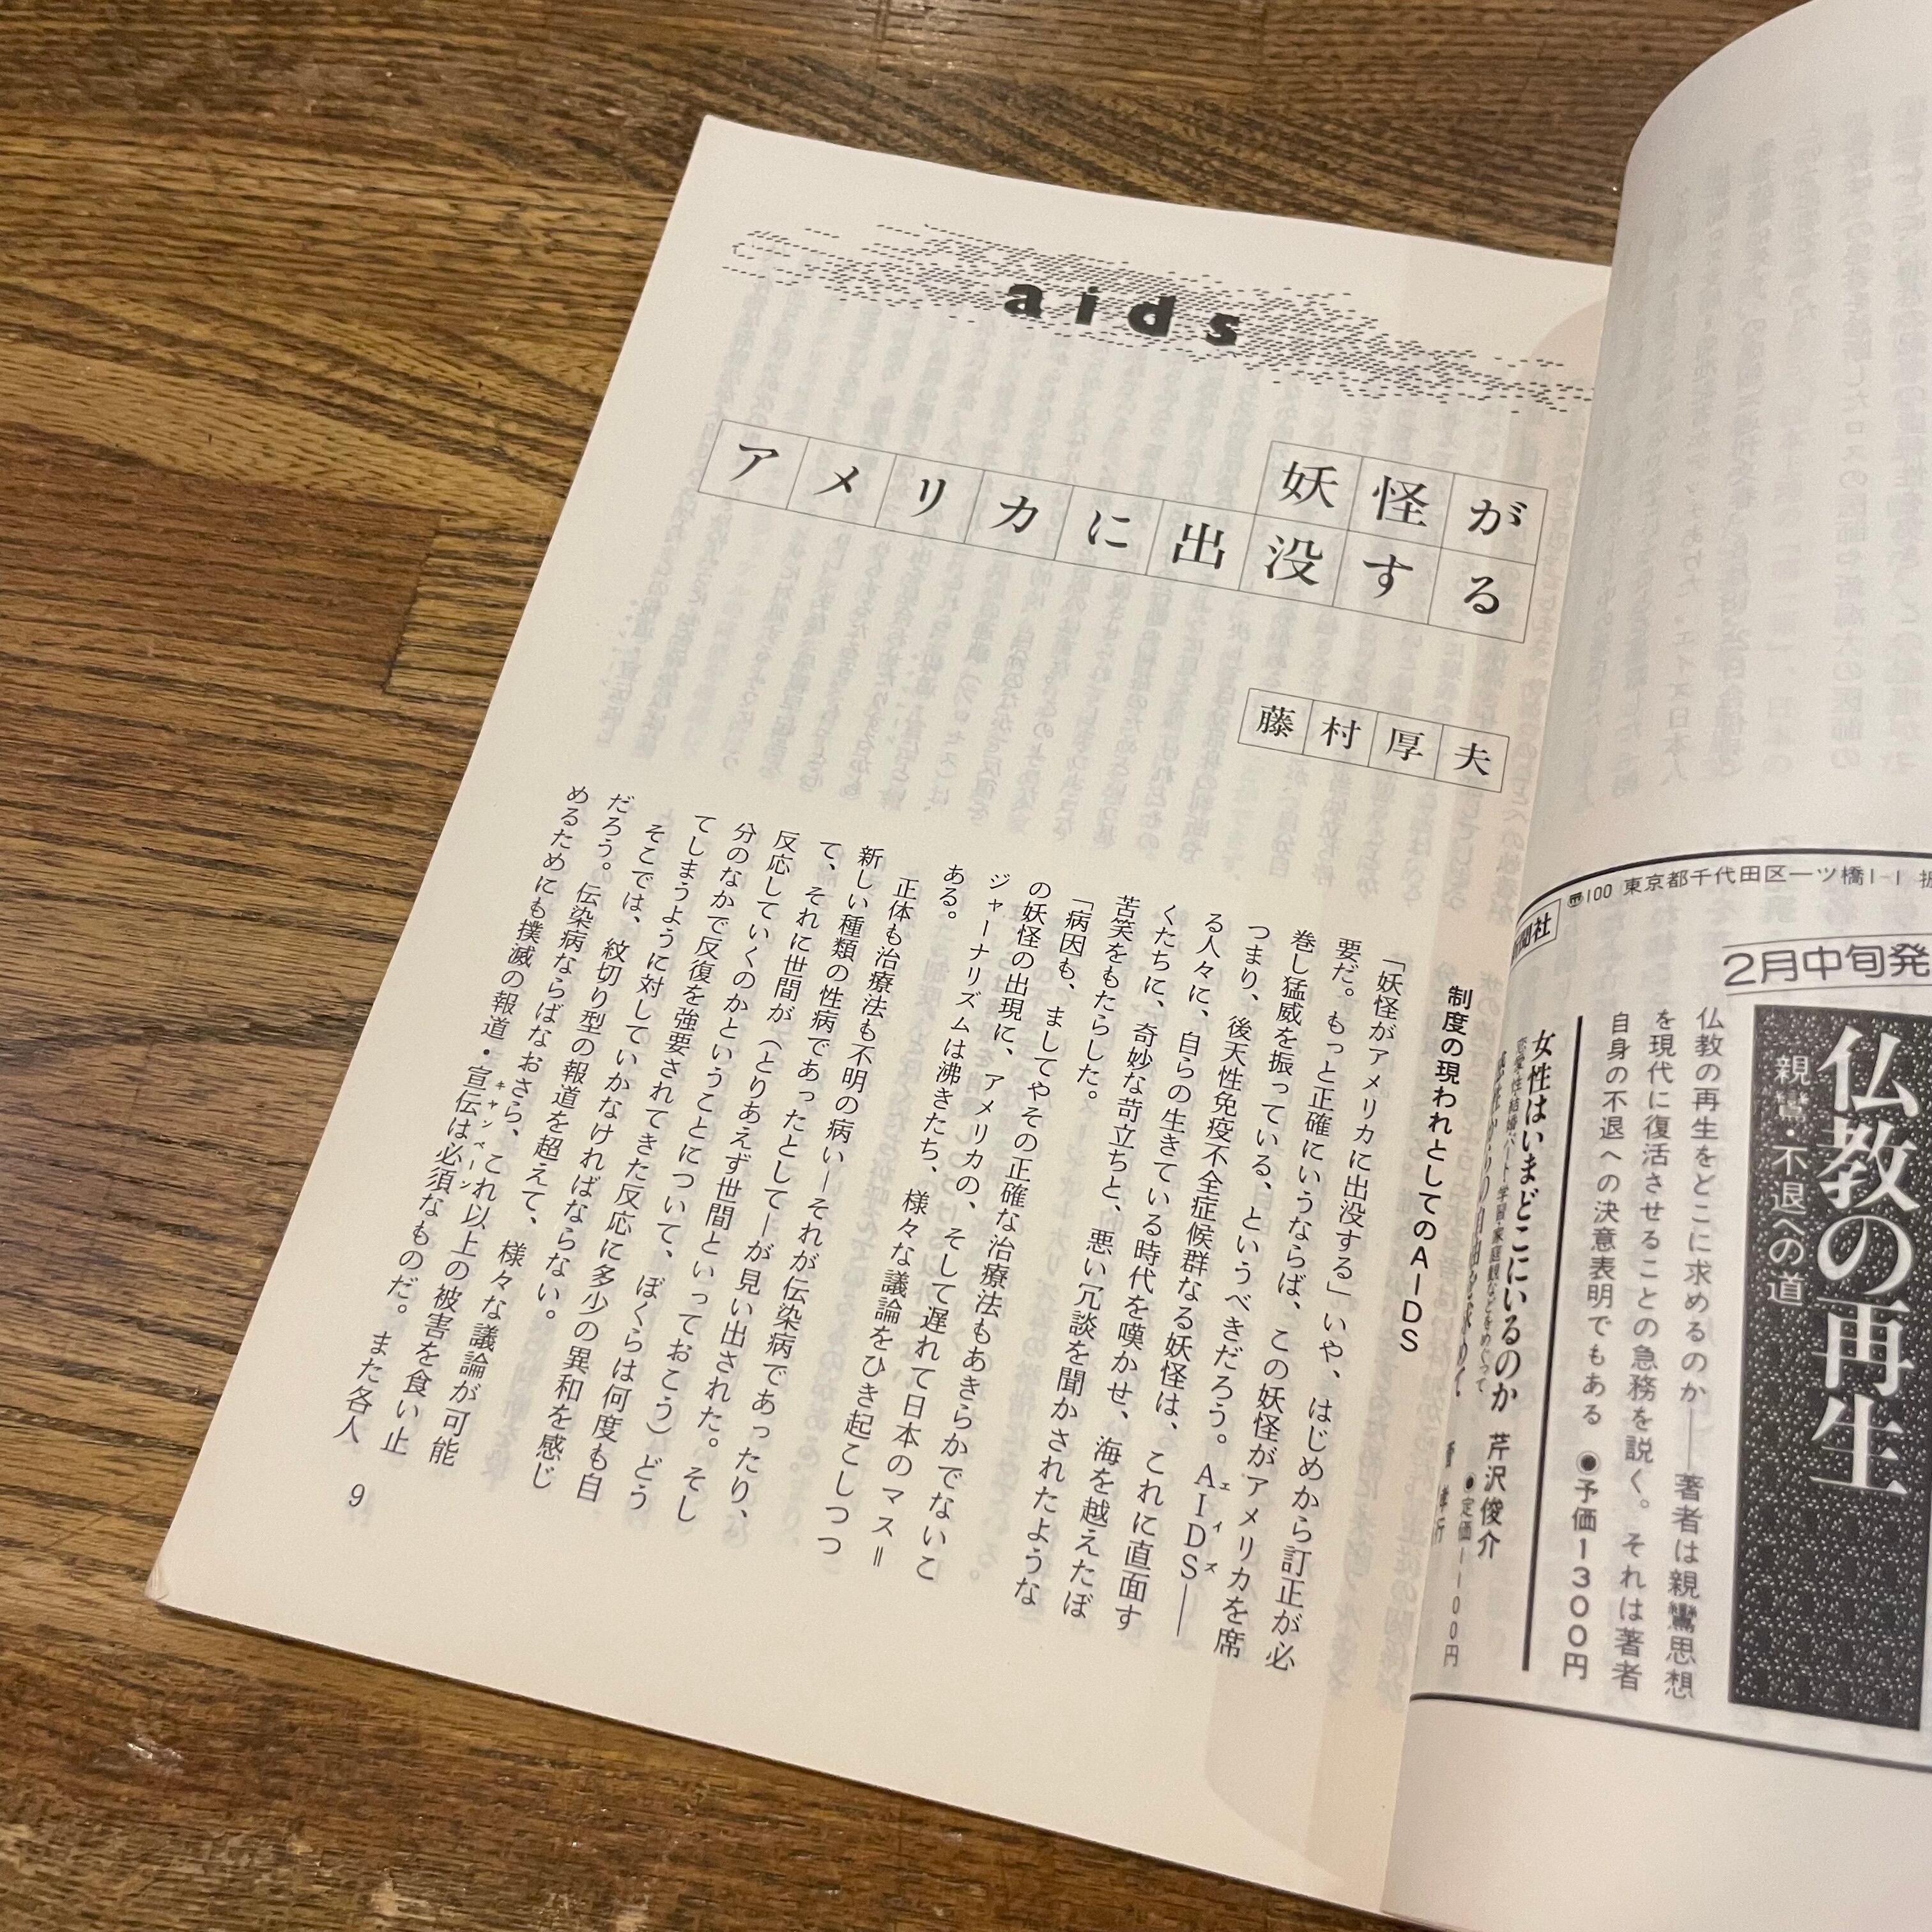 aids
妖怪が
アメリカに出没する
藤村厚夫
制度の現われとしてのAIDS
「妖怪がアメリカに出没する」いや、はじめから訂正が必
要だ。もっと正確にいうならば、この妖怪がアメリカを席
巻し猛威を振っている、というべきだろう。AIDS——
エイズ
つまり、後天性免疫不全症候群なる妖怪は、これに直面す
る人々に、自らの生きている時代を嘆かせ、海を越えたぼ
くたちに、奇妙な苛立ちと、悪い冗談を聞かされたような
苦笑をもたらした。
「病因も、ましてやその正確な治療法もあきらかでないこ
の妖怪の出現に、アメリカの、そして遅れて日本のマス＝
ジャーナリズムは沸きたち、様々な議論をひき起こしつつ
ある。
正体も治療法も不明の病い—それが伝染病であったり、
新しい種類の性病であったとして—が見い出された。そし
て、それに世間が（とりあえず世間といっておこう）どう
反応していくのかということについて、ぼくらは何度も自
分のなかで反復を強要されてきた反応に多少の異和を感じ
てしまうように対していかなければならない。
そこでは、紋切り型の報道を超えて、様々な議論が可能
だろう。伝染病ならばなおさら、これ以上の被害を食い止
めるためにも撲滅の報道・宣伝は必須なものだ。また各人
キャンペーン
9
〒100 東京都千代田区一ツ橋1-1
2月中旬発
仏教の再生
親鸞・不退への道
仏教の再生をどこに求めるのか——著者は親鸞思想
を現代に復活させることの急務を説く。それは著者
自身の不退への決意表明でもある ◉予価1300円
女性はいまどこにいるのか 芹沢俊介
●定価1100円